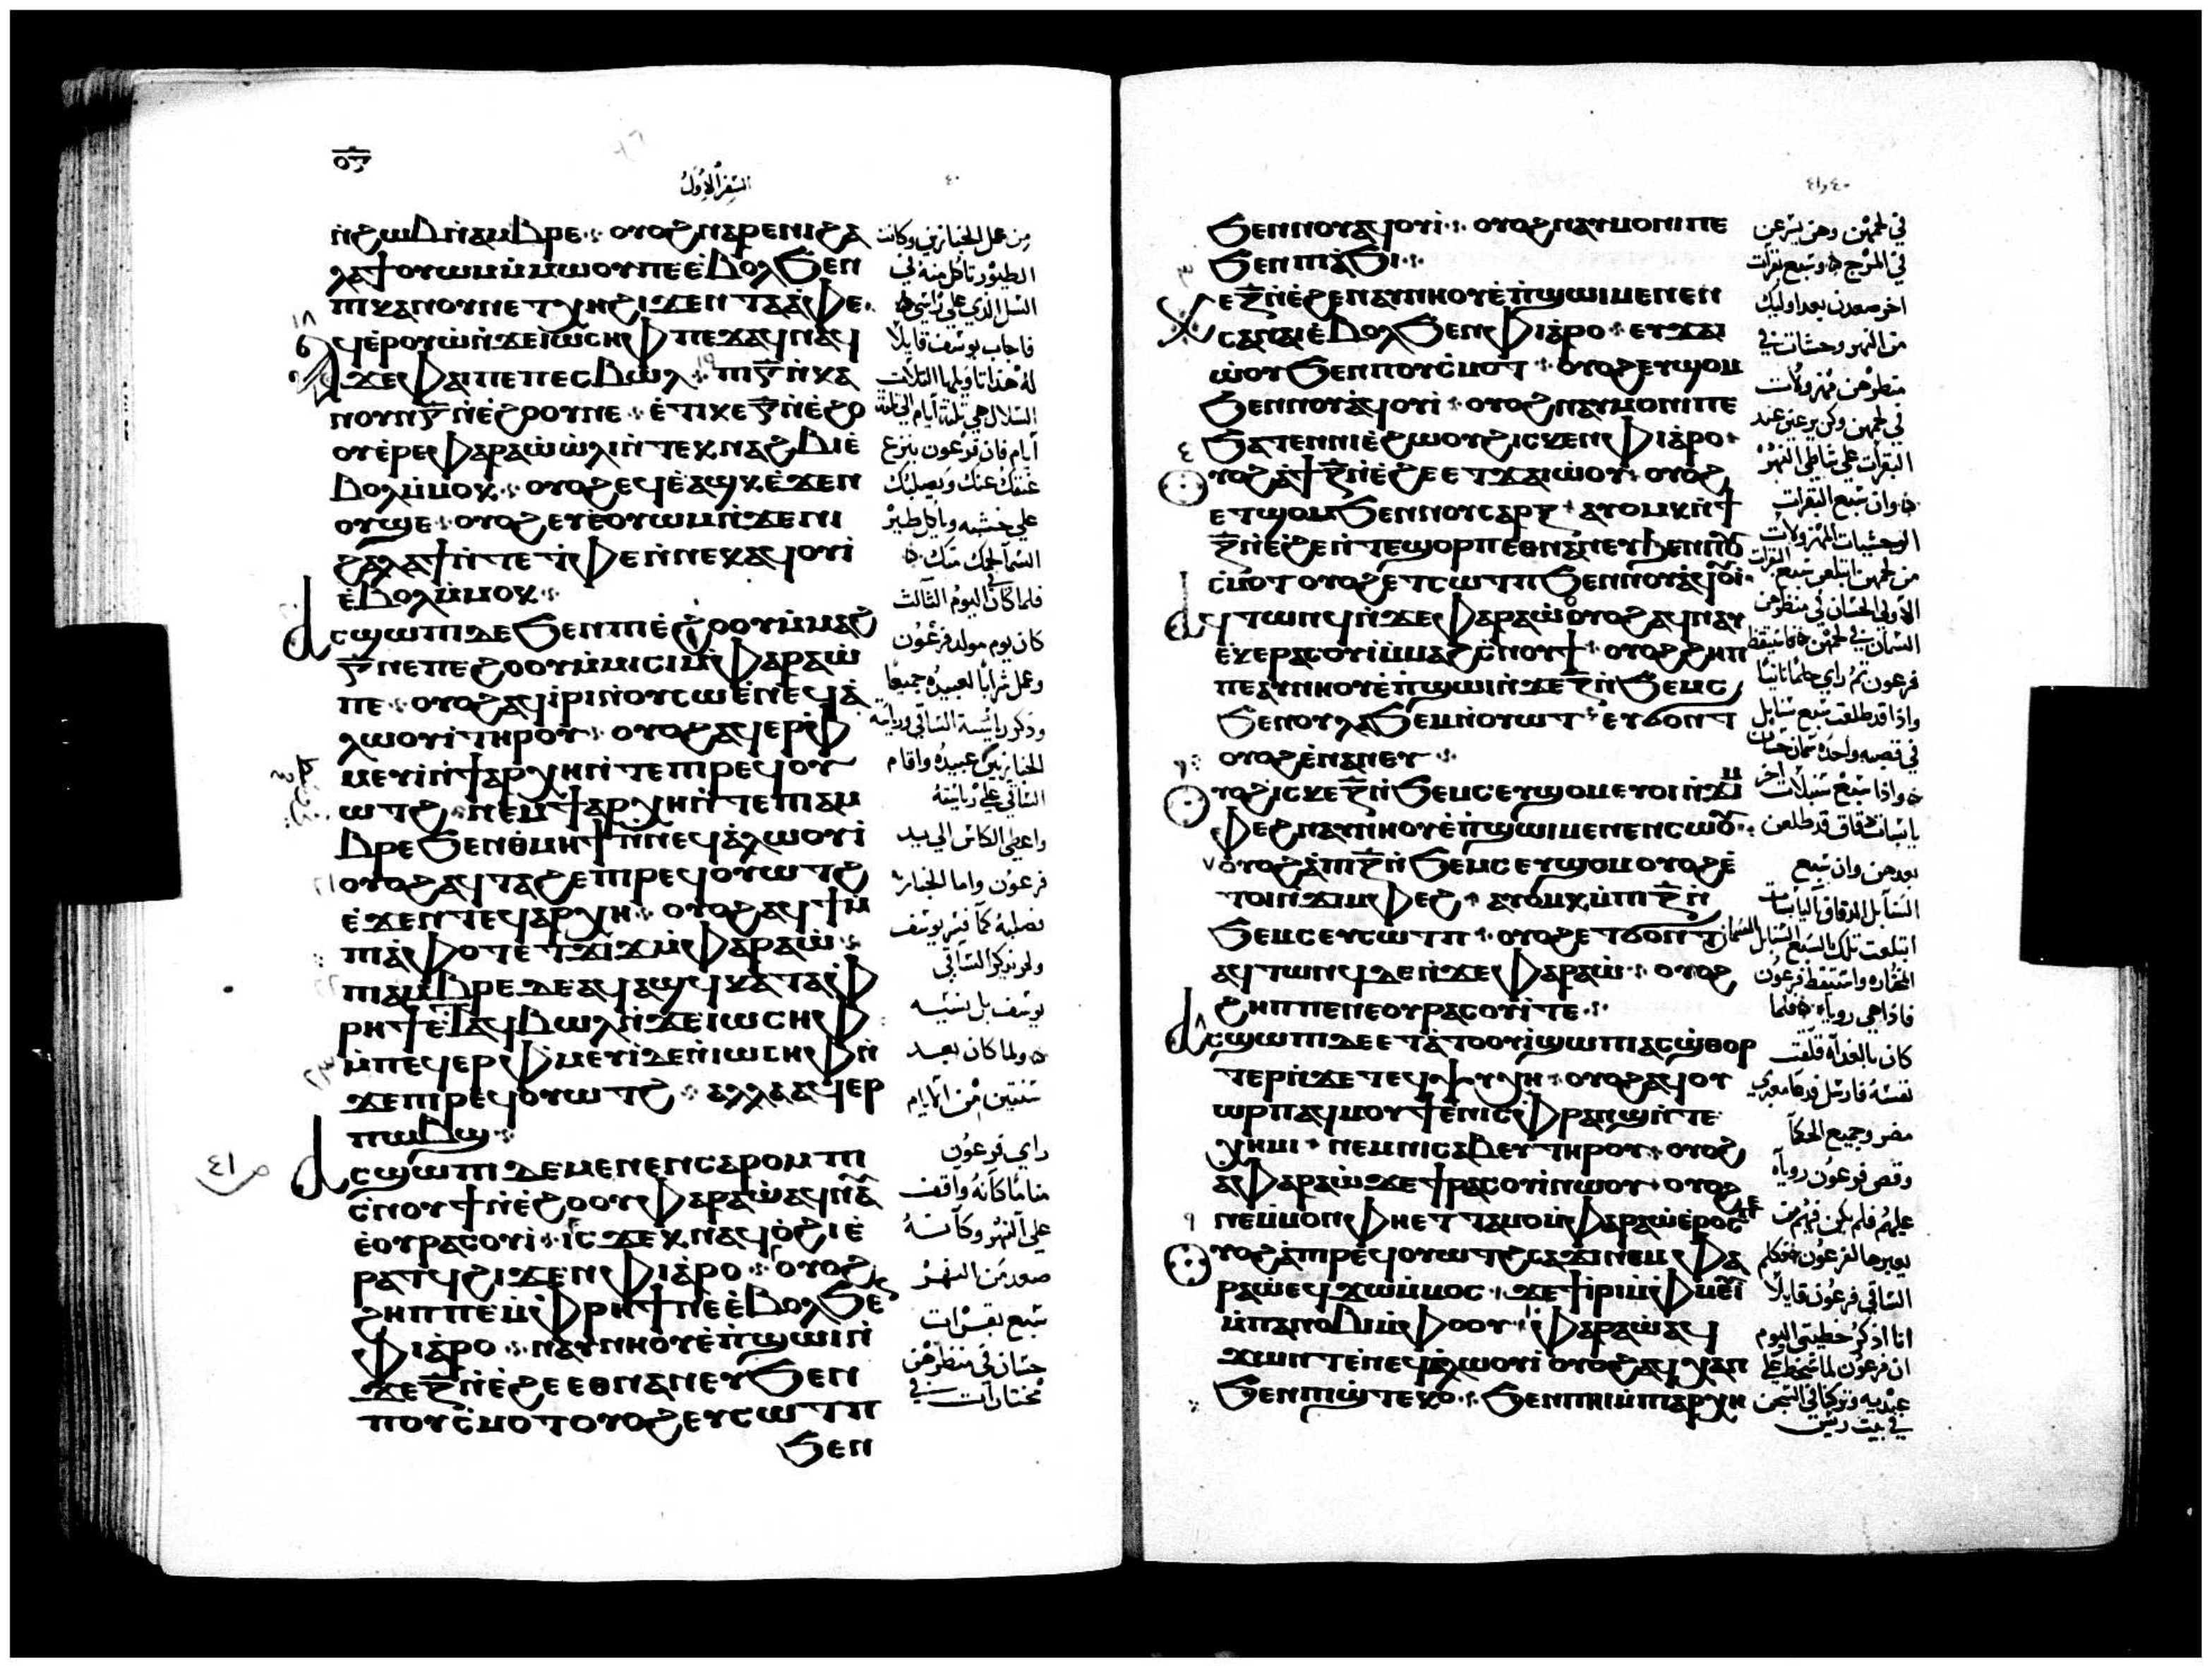 ⲟ̅ⲍ̅
السفر الاول
٤٠
ⲛ̀ϩⲱⲃⲛ̀ⲁⲙⲃⲣⲉ ⁘ ⲟⲩⲟϩⲛⲁⲣⲉⲛⲓϩⲁ
ⲗⲁϯⲟⲩⲱⲙⲙ̀ⲙⲱⲟⲩⲡⲉⲉ̀ⲃⲟⲗϧⲉⲛ
ⲡⲓⲕⲁⲛⲟⲩⲛⲉⲧⲭⲏϩⲓϫⲉⲛⲧⲁⲁ̀ⲫⲉ
ϥⲉ̀ⲣⲟⲩⲱⲛ̀ϫⲉⲓⲱⲥⲏⲫⲡⲉϫⲁϥⲛⲁϥ
ϫⲉⲫⲁⲓⲡⲉⲡⲉϥⲃⲱⲗ ⁘ ⲡⲓⲅ̅ⲛ̀ⲕⲁ
ⲛⲟⲩⲛⲅ̅ⲛ̀ⲉ̀ϩⲟⲟⲩⲛⲉ ⁘ ⲉ̀ⲧⲓⲕⲉⲅ̅ⲛ̀ⲉ̀ϩⲟ
ⲟⲩⲉ̀ⲣⲉⲫⲁⲣⲁⲱ̀ⲱ̀ⲗⲓⲛ̀ⲧⲉⲕⲛⲁϩⲃⲓⲉ̀
ⲃⲟⲗⲙ̀ⲙⲟⲕ ⁘ ⲟⲩⲟϩⲉϥⲉ̀ⲁϣⲕⲉ̀ϫⲉⲛ
ⲟⲩϣⲉ ⁘ ⲟⲩⲟϩⲉⲩⲉ̀ⲟⲩⲱⲙⲛ̀ϫⲉⲛⲓ
ϩⲁⲗⲁϯⲛ̀ⲧⲉⲧ̀ⲫⲉⲛ̀ⲛⲉⲕⲁϥⲟⲩⲓ̀
ⲉ̀ⲃⲟⲗⲙ̀ⲙⲟⲕ ⁘
ⲁⲥϣⲱⲡⲓⲇⲉϧⲉⲛⲡⲓⲉ̀ϩⲟⲟⲩⲙ̀ⲙⲁϩ
ⲅ̅ⲛⲉⲡⲉϩⲟⲟⲩⲙ̀ⲙⲓⲥⲓⲙ̀ⲫⲁⲣⲁⲱ̀
ⲡⲉ ⁘ ⲟⲩⲟϩⲁϥⲓ̀ⲣⲓⲛ̀ⲟⲩⲥⲱⲉ̀ⲛⲉϥⲁ̀
ⲗⲱⲟⲩⲓ̀ⲧⲏⲣⲟⲩ ⁘ ⲟⲩⲟϩⲁϥⲉⲣⲫ̀
ⲙⲉⲩⲓ̀ⲛ̀ϯⲁⲣⲭⲏⲛ̀ⲧⲉⲡⲓⲣⲉϥⲟⲩ
ⲱⲧϩ ⁘ ⲛⲉⲙϯⲁⲣⲭⲏⲛ̀ⲧⲉⲡⲓⲁⲙ
ⲃⲣⲉϧⲉⲛⲑⲙⲏϯⲛ̀ⲛⲉϥⲁ̀ⲗⲱⲟⲩⲓ̀
ⲟⲩⲟϩⲁϥⲧⲁϩⲉⲡⲓⲣⲉϥⲟⲩⲱⲧϩ
ⲉ̀ϫⲉⲛⲧⲉϥⲁⲣⲭⲏ ⁘ ⲟⲩⲟϩⲁϥϯⲙ̀
ⲡⲓⲁ̀ⲫⲟⲧⲉ̀ⲧϫⲓϫⲙ̀ⲫⲁⲣⲁⲱ̀ ⁘
ⲡⲓⲁⲙⲃⲣⲉⲇⲉⲁϥⲁϣϥⲕⲁⲧⲁⲫ̀
ⲣⲏϯⲉ̀ⲧⲁϥⲃⲱⲗⲛ̀ϫⲉⲓⲱⲥⲏⲫ
ⲙ̀ⲡⲉϥⲉⲣⲫ̀ⲙⲉⲩⲓ̀ⲇⲉⲛ̀ⲓⲱⲥⲏⲫⲛ̀
ϫⲉⲡⲓⲣⲉϥⲟⲩⲱⲧϩ ⁘ ⲁⲗⲗⲁⲁϥⲉⲣ
ⲡⲱⲃϣ ⁘
ⲁⲥϣⲱⲡⲓⲇⲉⲙⲉⲛⲉⲛⲥⲁⲣⲟⲙⲡⲓ
ⲥ̀ⲛⲟⲩϯⲛ̀ⲉ̀ϩⲟⲟⲩⲫⲁⲣⲁⲱ̀ⲁϥⲛⲁ
ⲉ̀ⲟⲩⲣⲁⲥⲟⲩⲓ̀ ⁘ ⲓⲥϫⲉⲕⲛⲁϥⲟ̀ϩⲓⲉ̀
ⲣⲁⲧϥϩⲓϫⲉⲛⲫⲓⲁ̀ⲣⲟ ⁘ ⲟⲩⲟϩ
ϩⲏⲡⲡⲉⲙ̀ⲫⲣⲏϯⲛⲉⲉ̀ⲃⲟⲗϧⲉⲛ
ⲫⲓⲁ̀ⲣⲟ ⁘ ⲛⲁⲩⲛⲏⲟⲩⲉ̀ⲡ̀ϣⲱⲓⲛ̀
ϫⲉⲍ̅ⲛ̀ⲉ̀ϩⲉⲉⲑⲛⲁⲛⲉⲩϧⲉⲛ
ⲡⲟⲩⲥ̀ⲙⲟⲧⲟⲩⲟϩⲉⲩⲥⲱⲧⲡ
ϧⲉⲛ
من عمل الخبازين وكانت
الطيور تاكل منه في
السل الذي على راسي
فاجاب يوسف قايلا
له هذا تاويلها الثلاث
السلال هي ثلثة ايام
ايام فان فرعون ينزع
عنقك عنك ويصلبك
على خشبه وياكل طير
السما لحمك منك
فلما كان اليوم الثالث
كان يوم مولد فرعون
وعمل شرابا لعبيده جميعا
وذكر رياسة الساقي ورياسة
الخبازين عبيده واقام
الساقي على رياسته
واعطى الكاس الى يد
فرعون واما الخباز
فصلبه كما فسر يوسف
ولم يذكر الساقي
يوسف بل نسيه
ولما كان بعد
سنتين من الايام
راى فرعون
مناما كانه واقف
على النهر وكانه
صعد من النهر
سبع بقرات
حسان في منظرهن
مختارات في
٤١
٤٠ و٤١
ϧⲉⲛⲛⲟⲩⲁϥⲟⲩⲓ̀ ⁘ ⲟⲩⲟϩⲛⲁⲩⲙⲟⲛⲓⲡⲉ
ϧⲉⲛⲡⲓⲁ̀ϧⲓ ⁘
ⲕⲉⲍ̅ⲛ̀ⲉ̀ϩⲉⲛⲁⲩⲛⲏⲟⲩⲉ̀ⲡ̀ϣⲱⲓⲙⲉⲛⲉⲛ
ⲥⲁⲛⲁⲓⲉ̀ⲃⲟⲗϧⲉⲛⲫⲓⲁ̀ⲣⲟ ⁘ ⲉⲩϫⲁⲓ
ⲱ̀ⲟⲩϧⲉⲛⲡⲟⲩⲥ̀ⲙⲟⲧ ⁘ ⲟⲩⲟϩⲉⲩϣⲟⲙ
ϧⲉⲛⲛⲟⲩⲁ̀ϥⲟⲩⲓ̀ ⁘ ⲟⲩⲟϩⲛⲁⲩⲙⲟⲛⲓⲡⲉ
ϧⲁⲧⲉⲛⲛⲓⲉ̀ϩⲱⲟⲩϩⲓⲥⲕⲉⲛⲫⲓⲁ̀ⲣⲟ
ⲟⲩⲟϩⲁ̀ϯⲍ̅ⲛ̀ⲉ̀ϩⲉⲉⲧϫⲁⲓⲱ̀ⲟⲩ ⁘ ⲟⲩⲟϩ
ⲉⲧϣⲟⲙϧⲉⲛⲛⲟⲩⲥⲁⲣⲝ ⁘ ⲁⲩⲟⲙⲕⲛ̀ϯ
ⲍ̅ⲛ̀ⲉ̀ϩⲉⲛ̀ⲧⲉϣⲟⲣⲡⲉⲑⲛⲁⲛⲉⲩϧⲉⲛⲡⲟⲩ
ⲥ̀ⲙⲟⲧⲟⲩⲟϩⲉⲧⲥⲱⲧⲡϧⲉⲛⲛⲟⲩⲁϥⲟⲩⲓ̀
ⲁϥⲧⲱⲛϥⲛ̀ϫⲉⲫⲁⲣⲁⲱ̀ⲟⲩⲟϩⲁϥⲛⲁⲩ
ⲉ̀ⲕⲉⲣⲁⲥⲟⲩⲓ̀ⲙ̀ⲙⲁϩⲥ̀ⲛⲟⲩϯ ⁘ ⲟⲩⲟϩϩⲏⲡ
ⲡⲉⲁⲩⲛⲏⲟⲩⲉ̀ⲡ̀ϣⲱⲓⲛ̀ϫⲉⲍ̅ⲛ̀ϧⲉⲙⲥ
ϧⲉⲛⲟⲩⲗⲁϧⲉⲙⲛ̀ⲟⲩⲱⲧ ⁘ ⲉⲩϭⲟⲛⲧ
ⲟⲩⲟϩⲉ̀ⲛⲁⲛⲉⲩ ⁘
ⲟⲩⲟϩⲓⲥⲕⲉⲍ̅ⲛ̀ϧⲉⲙⲥⲉⲩϣⲟⲙⲉⲩⲟⲓⲛ̀ϫⲓⲙ
ⲫⲉϩⲛⲁⲩⲛⲏⲟⲩⲉ̀ⲡ̀ϣⲱⲓⲙⲉⲛⲉⲛⲥⲱⲟⲩ ⁘
ⲟⲩⲟϩⲁ̀ⲡⲓⲍ̅ⲛ̀ϧⲉⲙⲥⲉⲩϣⲟⲙⲟⲩⲟϩⲉ̀
ⲧⲟⲓⲛ̀ϫⲓⲙⲫⲉϩ ⁘ ⲁⲩⲟⲙⲕⲙ̀ⲡⲓⲍ̅ⲛ̀
ϧⲉⲙⲥⲉⲩⲥⲱⲧⲡ ⁘ ⲟⲩⲟϩⲉⲧϭⲟⲛⲧ
ⲁϥⲧⲱⲛϥⲇⲉⲛ̀ϫⲉⲫⲁⲣⲁⲱ̀ ⁘ ⲟⲩⲟϩ
ϩⲏⲡⲡⲉⲛⲉⲟⲩⲣⲁⲥⲟⲩⲓ̀ⲧⲉ ⁘
ⲁⲥϣⲱⲡⲓⲇⲉⲉⲧⲁ̀ⲧⲟⲟⲩⲓ̀ϣⲱⲡⲓⲁⲥϣ̀ⲑⲟⲣ
ⲧⲉⲣⲛ̀ϫⲉⲧⲉϥⲯⲩⲭⲏ ⁘ ⲟⲩⲟϩⲁϥⲟⲩ
ⲱⲣⲡⲁϥⲙⲟⲩϯⲉ̀ⲛⲓⲥⲫⲣⲁⲛϣⲛ̀ⲧⲉ
ⲭⲏⲙⲓ ⁘ ⲛⲉⲙⲛⲓⲥⲁⲃⲉⲩⲧⲏⲣⲟⲩ ⁘ ⲟⲩⲟϩ
ⲁⲫⲁⲣⲁⲱ̀ϫⲉϯⲣⲁⲥⲟⲩⲓ̀ⲛ̀ⲱⲟⲩ ⁘ ⲟⲩⲟϩ
ⲛⲉⲙ̀ⲙⲟⲛⲫⲏⲉⲧⲧⲁⲙⲟⲙ̀ⲫⲁⲣⲁⲱ̀ⲉ̀ⲣⲟⲥ
ⲟⲩⲟϩⲁ̀ⲡⲓⲣⲉϥⲟⲩⲱⲧϩⲥⲁϫⲓⲛⲉⲙⲫⲁ
ⲣⲁⲱ̀ⲉϥϫⲱⲙ̀ⲙⲟⲥ ⁘ ϫⲉϯⲓ̀ⲣⲓⲙ̀ⲫⲙⲉⲩⲓ̀
ⲙ̀ⲡⲁⲛⲟⲃⲓⲙ̀ⲫⲟⲟⲩ ⁘ ⲫⲁⲣⲁⲱ̀ⲁϥ
ϫⲱⲛⲧⲉ̀ⲛⲉϥⲁ̀ⲗⲱⲟⲩⲓ̀ⲟⲩⲟϩⲁϥⲭⲁⲛ
ϧⲉⲛⲡⲓϣ̀ⲧⲉⲕⲟ ⁘ ϧⲉⲛⲡⲏⲓⲙ̀ⲡⲓⲁⲣⲭⲏ
في لحمهن وهن يرعين
في المرج وسبع بقرات
اخر صعدن بعد اوليك
من النهر وحشات في
منظرهن مهزولات
في لحمهن وكن يرعين عند
البقرات على شاطي النهر
وان سبع البقرات
الوحشيات المهزولات
من لحمهن ابتلعن سبع البقرات
الاولى الحسان في منظرهن
السمان في لحمهن فاستيقظ
فرعون ثم راى حلما ثانيا
واذا قد طلعت سبع سنابل
في قصبه واحده سمان حسان
واذا سبع سنبلات اخر
يابسات دقاق قد طلعن
بعدهن وان سبع
السنابل الدقاق اليابسات
ابتلعت تلك السبع السنابل السمان
المختاره واستيقظ فرعون
فاذا هي رويا فلما
كان بالغداه قلقت
نفسه فارسل فدعا معبري
مصر وجميع الحكما
وقص فرعون روياه
عليهم فلم يكن فيهم من
يعبرها لفرعون فتكلم
الساقي فرعون قايلا
انا اذكر خطيتي اليوم
ان فرعون لما سخط على
عبديه وتركنا في السجن
في بيت رئيس